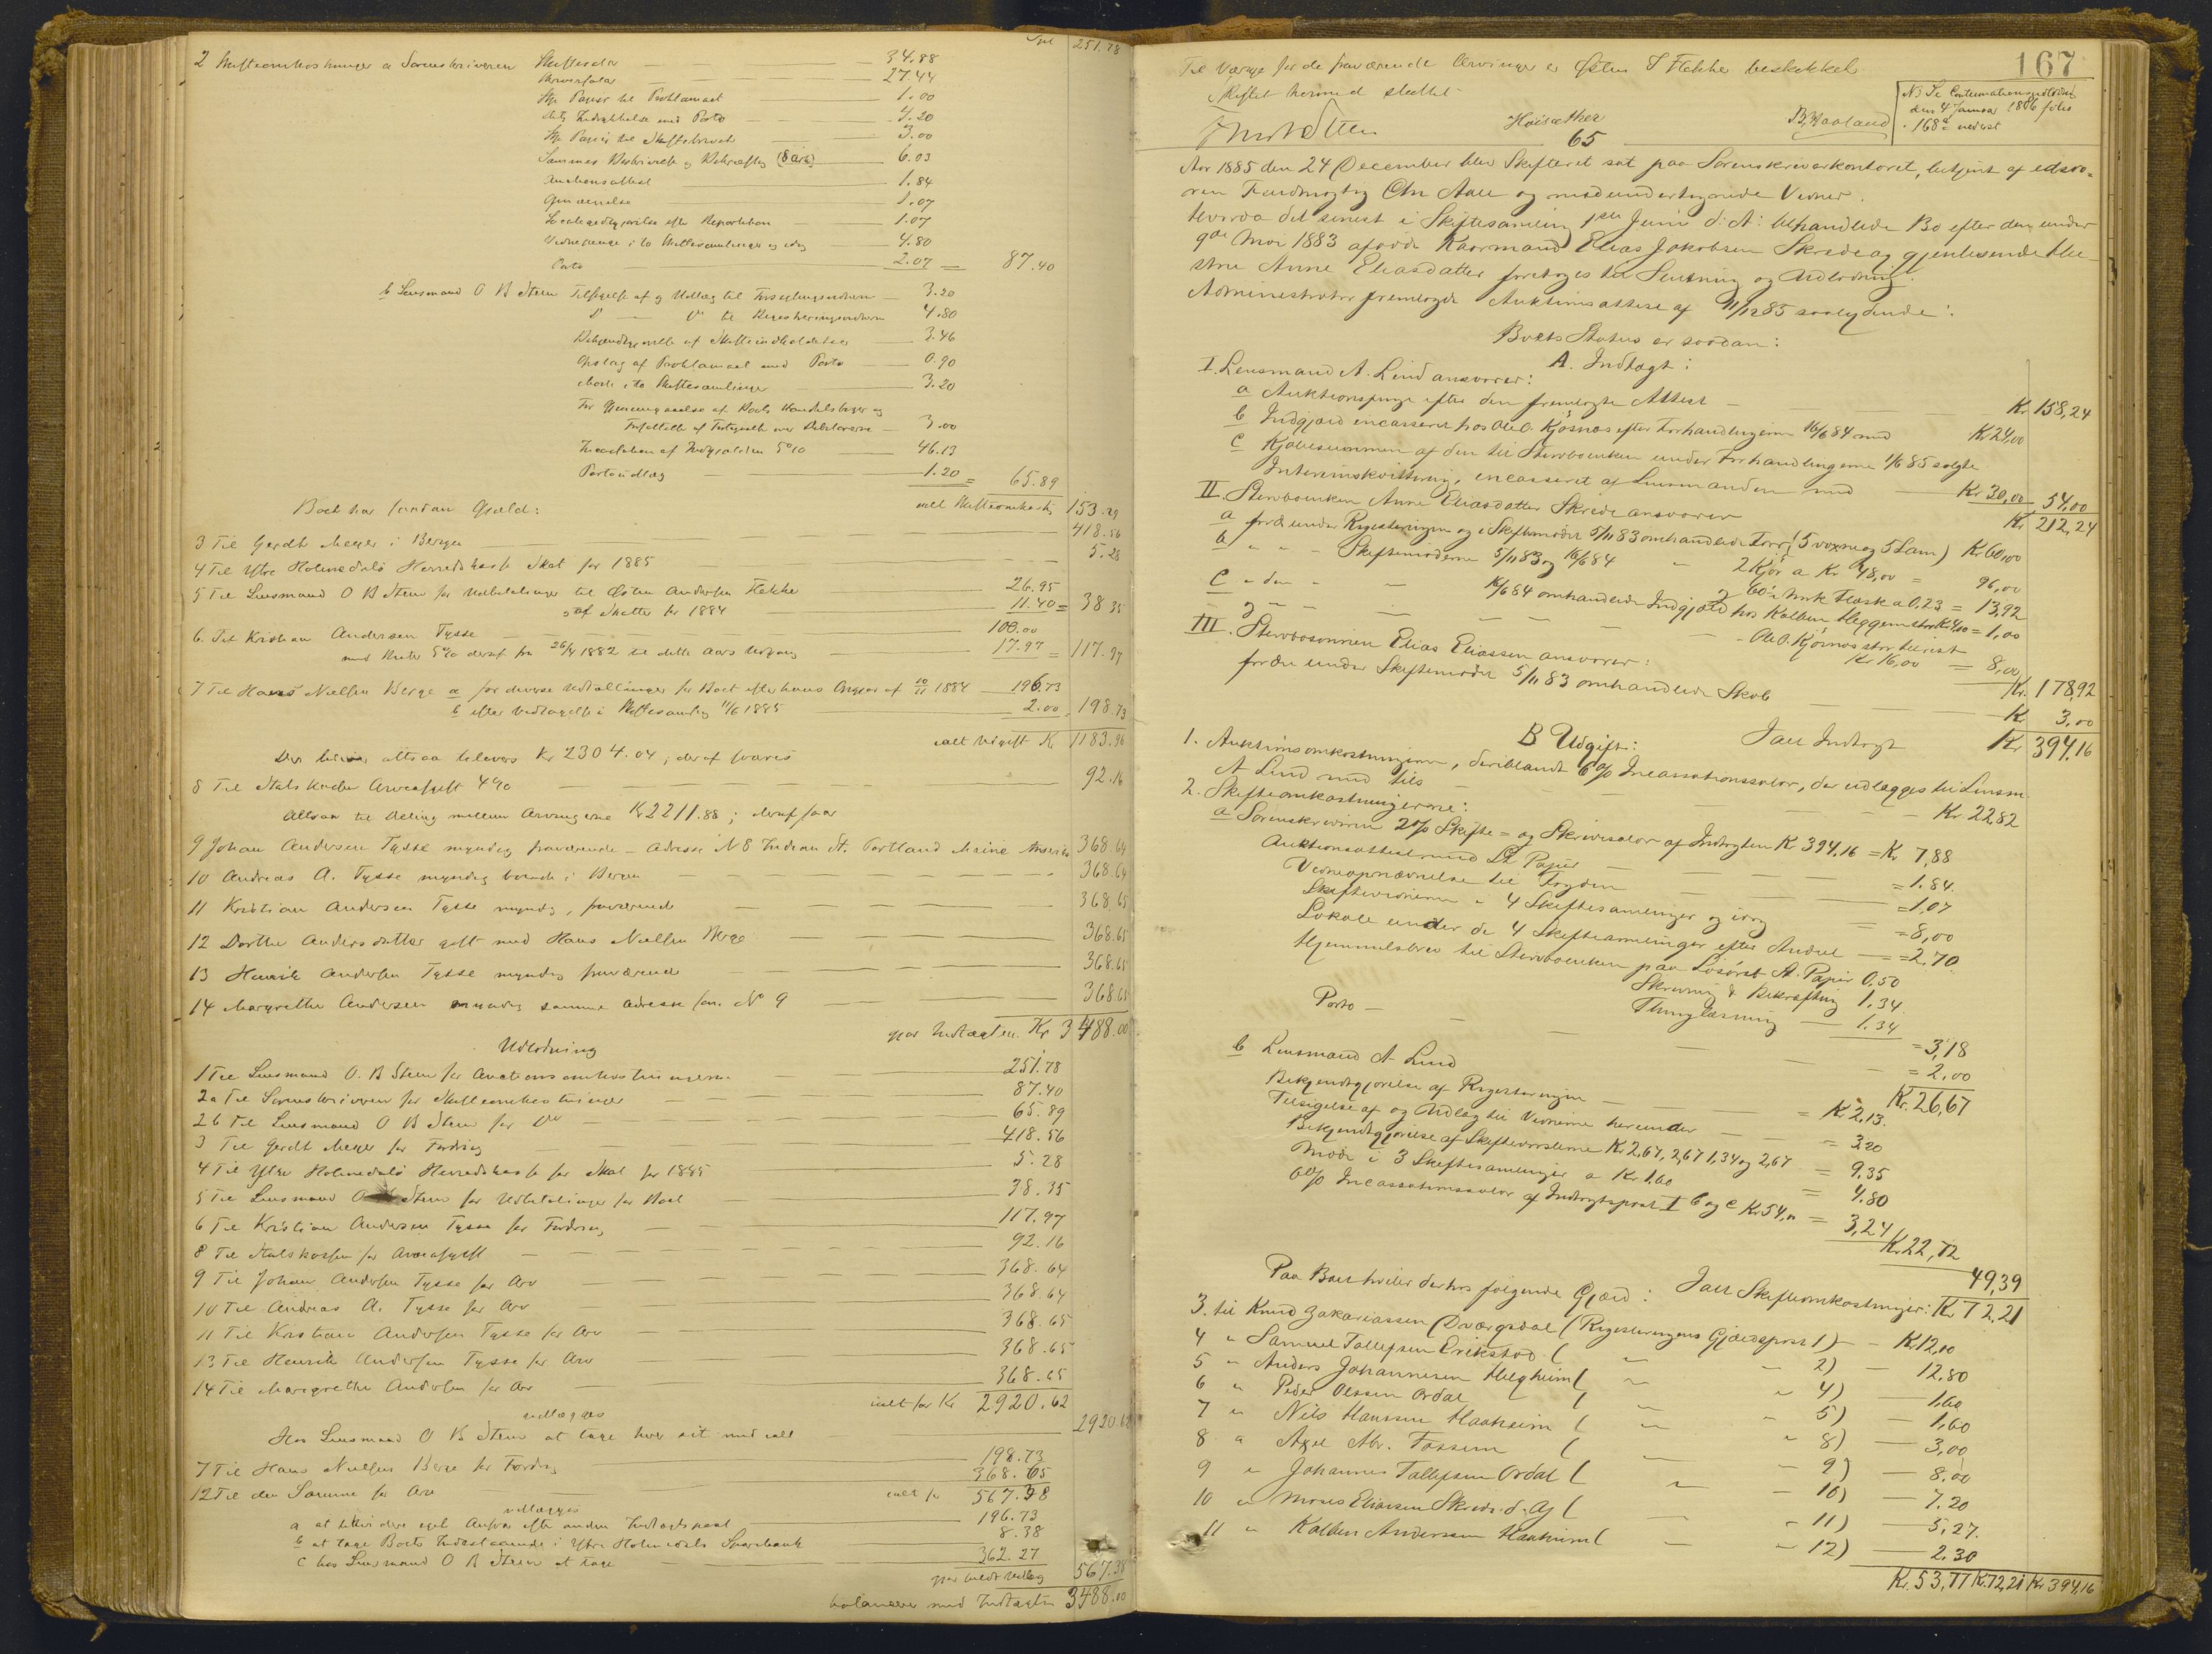 251.78
2 Skifteomkostninger a Sorenskriveren Skiftesalær 34.88
Skriversalær 27.44
Stp Papir til Proklamaet 1.00
dets Indrykkelse med Porto 4.20
Stp Papir til Skiftebrevet 3.00
Sammes Beskrivelse og Bekræftg (8 ark) 6.03
Auctionsattest 1.84
Opnævnelse 1.07
Localegodtgjørelse efter Repartition 1.07
Vidnepenge i to Skiftesamlinger og idag 4.80
Porto 2.07 = 87.40
b Lensmand O B Steen Tilsigelse af og Udlæg til Forseglingsvidnerne 3.20
Do — Do til Registreringsvidnerne 4.80
Bekjendtgjørelse af Skifteindkaldelser 3.46
Opslag af Proklamaet med Porto 0.90
Møde i to Skiftesamlinger 3.20
For Gjennemgaaelse af Boets Handelsbøger og
Forfattelse af Fortegnelse over Debitorerne 3.00
Incassation af Indgjælden 5% 46.13
Portoudlæg 1.20 = 65.89
ialt Skifteomkostn 153.29
Boet har saadan Gjæld:
3 Til Gerdt Meyer i Bergen 418.56
4 Til Ytre Holmedals Herredskasse Skat for 1885 5.28
5 Til Lensmand O B Steen for Udbetalinger til Østen Andersen Flekke 26.95
af Skatter for 1884 11.40 = 38.35
6. Til Kristian Andersen Tysse 100.00
med Renter 5% deraf fra 26/4 1882 til dette Aars Udgang 17.97 = 117.97
7 Til Hans Nielsen Berge a for diverse Udtællinger for Boet efter hans Opgave af 10/11 1884 196.73
b efter Vedtagelse i Skiftesamling 11/6 1885 2.00, 198.73
ialt Udgift Kr 1183.96
Der bliver altsaa tilovers Kr 2304.04; deraf svares
8 Til Statskassen Arveafgift 4% 92.16
Altsaa til Deling mellem Arvingerne Kr 2211.88; deraf faar
9 Johan Andersen Tysse myndig fraværende – Adresse N 8 Indian St. Portland Maine Amerika 368.64
10 Andreas A. Tysse myndig boende i Bergen 368.64
11 Kristian Andersen Tysse myndig, fraværende 368.65
12 Dorthe Andersdatter gift med Hans Nielsen Berge 368.65
13 Henrik Andersen Tysse myndig fraværende 368.65
14 Margrethe Andersen myndig samme Adresse som No 9 368.65
gjør Indtægten Kr 3488.00
Udlodning
1 Til Lensmand O. B Steen for Auctionsomkostningerne 251.78
2a Til Sorenskriveren for Skifteomkostninger 87.40
2b Til Lensmand O B Steen for Do 65.89
3 Til Gerdt Meyer for Fordring 418.56
4 Til Ytre Holmedals Herredskasse for Skat for 1885 5.28
5 Til Lensmand O B Steen for Udbetalinger for Boet 38.35
6 Til Kristian Andersen Tysse for Fordring 117.97
8 Til Statskassen for Arveafgift 92.16
9 Til Johan Andersen Tysse for Arv 368.64
10 Til Andreas A. Tysse for Arv 368.64
11 Til Kristian Andersen Tysse for Arv 368.65
13 Til Henrik Andersen Tysse for Arv 368.65
14 Til Margrethe Andersen for Arv 368.65
ialt for Kr 2920.62
udlægges
Hos Lensmand O B Steen at tage hver sit med ialt 2920.62
7 Til Hans Nielsen Berge for Fordring 198.73
12 Til den Samme for Arv 368.65
ialt for 567.38
udlægges
a at tilsvare eget Ansvar efter anden Indtægtspost 196.73
b at tage Boets Indestaaende i Ytre Holmedals Sparebank 8.38
c hos Lensmand O B Steen at tage 362.27
567.38
gjør hvad Udlæg
balancerer med Indtægten 3488.00
167
Til Værge for de fraværende Arvinger er Østen T Flekke beskikket
Skiftet hermed sluttet
Høisæther
B, Vaaland
NB Se Continuationsprotokol
den 4 Januar 1886 folio
168a nederst
65
Aar 1885 den 24 December blev Skifteret sat paa Sorenskriverkontoret, betjent af edsvo-
ren Fuldmægtig Chr Aall og medundertegnede Vidner.
Hvorda det senest i Skiftesamling 1ste Juni d: A: behandlede Bo efter den under
9de Mai 1883 afdøde Kaarmand Elias Jakobsen Skrede og gjenlevende Hu-
stru Anne Eliasdatter foretoges til Slutning og Udlodning.
Administrator fremlagde Auktionsattest af 11/12 85 saalydende:
Boets Status er saadan:
A. Indtægt:
I. Lensmand A. Lind ansvarer:
a Auktionspenge efter den fremlagte Attest Kr 158,24
b Indgjæld encasseret hos Ole O. Kjøsnæs efter Forhandlingerne 16/6 84 med Kr 24,00
c Kjøbesummen af den til Stervboenken under Forhandlingerne 1/6 85 solgte
Interimskvittering, encasseret af Lensmanden med Kr 30,00 54,00
Kr 212,24
II. Stervboenken Anne Eliasdatter Skrede ansvarer
a for de under Registeringen og i Skiftemødet 5/11 83 omhandlede Faar (5 voxne og 5 Lam) Kr 60,00
b " " " Skiftemøderne 5/11 83 og 16/6 84 " 2 Kjør a Kr 48,00 = 96,00
og 60½ Mrk Flæsk a 0,23 = 13,92
c " den " — 16/6 84 omhandlede Indgjæld hos Kolben Heggem stor Kr 4,00 = 1,00
og — — — — Ole O. Kjøsnæs stor til rest
Kr 16,00 = 8,00
Kr. 178,92
III. Stervbosønnen Elias Eliassen ansvarer:
for den under Skiftemødet 5/11 83 omhandlede Skab Kr 3,00
Ialt Indtægt Kr 394,16
B Udgift:
1. Auktionsomkostningerne, deriblandt 6% Incassationssalær, der udlægges til Lensm.
A Lind med tils Kr. 22,82
2. Skifteomkostningerne:
a Sorenskriveren 2% Skifte- og Skriversalær af Indtægten K 394,16 = Kr 7,88
Auktionsattest med St Papir = 1.84.
Vidneopnævnelse til Frydm = 1,07
Skiftevidnerne i 4 Skiftesamlinger og idag = 8,00
Lokale under de 4 Skiftesamlinger efter Andeel = 2,70
Hjemmelsbrev til Stervboenken paa Løsøret St. Papir 0,50
Skrivning & Bekræftning 1,34
Thinglæsning 1,34
= 3,18
Porto = 2.00
Kr. 26,67
b Lensmand A Lind
Bekjendtgjørelse af Registeringen = Kr 2,13.
Tilsigelse af og Udlæg til Vidnerne herunder = 3,20
Bekjendtgjørelse af Skiftevarslerne Kr 2,67, 2,67 1,34 og 2,67 = 9,35
Møde i 3 Skiftesamlinger a Kr 1,60 = 4,80
6% Incassationssalær af Indtægtspost I b og c Kr 54,00 = 3,24
Kr. 22,72
49,39
Ialt Skifteomkostninger: Kr. 72,21
Paa Boet hviler derhos følgende Gjæld:
3. til Knud Zakariassen Dvergsdal (Registeringens Gjældspost 1) Kr 12,00
4 " Samuel Tollefsen Erikstad ( " 2) 12,80
5 " Anders Johannesen Helgheim ( " 4) 1,60
6 " Peder Olssen Ordal ( " 5) 1,60
7 " Nils Hanssen Haaheim ( " 8) 3,00
8 " Axel Abr. Fossum ( " 9) 8,00
9 " Johannes Tollefsen Ordal ( " 10) 7.20
10 " Mons Eliassen Skrede d. Æ ( " 11) 5,27.
11 " Kolben Andersen Haaheim ( " 12) 2.30
Kr. 53,77 K. 72,21 Kr. 394,16